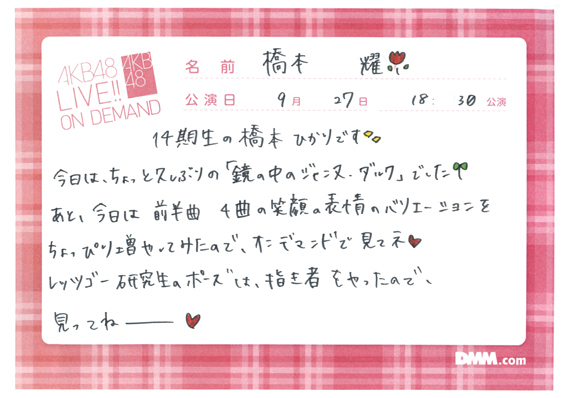 AKB48
LIVE!!
ON DEMAND
AKB
48
名 前 橋本 耀
公演日 9月 27日 18: 30 公演
14期生の橋本ひかりです
今日は、ちょっと久しぶりの「鏡の中のジャンヌ・ダルク」でした
あと、今日は 前半曲 4曲の笑顔の表情のバリエーションを
ちょっぴり増やしてみたので、オンデマンドで見てネ
レッツゴー研究生のポーズは、指き者をやったので、
見ってねー
DMM.com